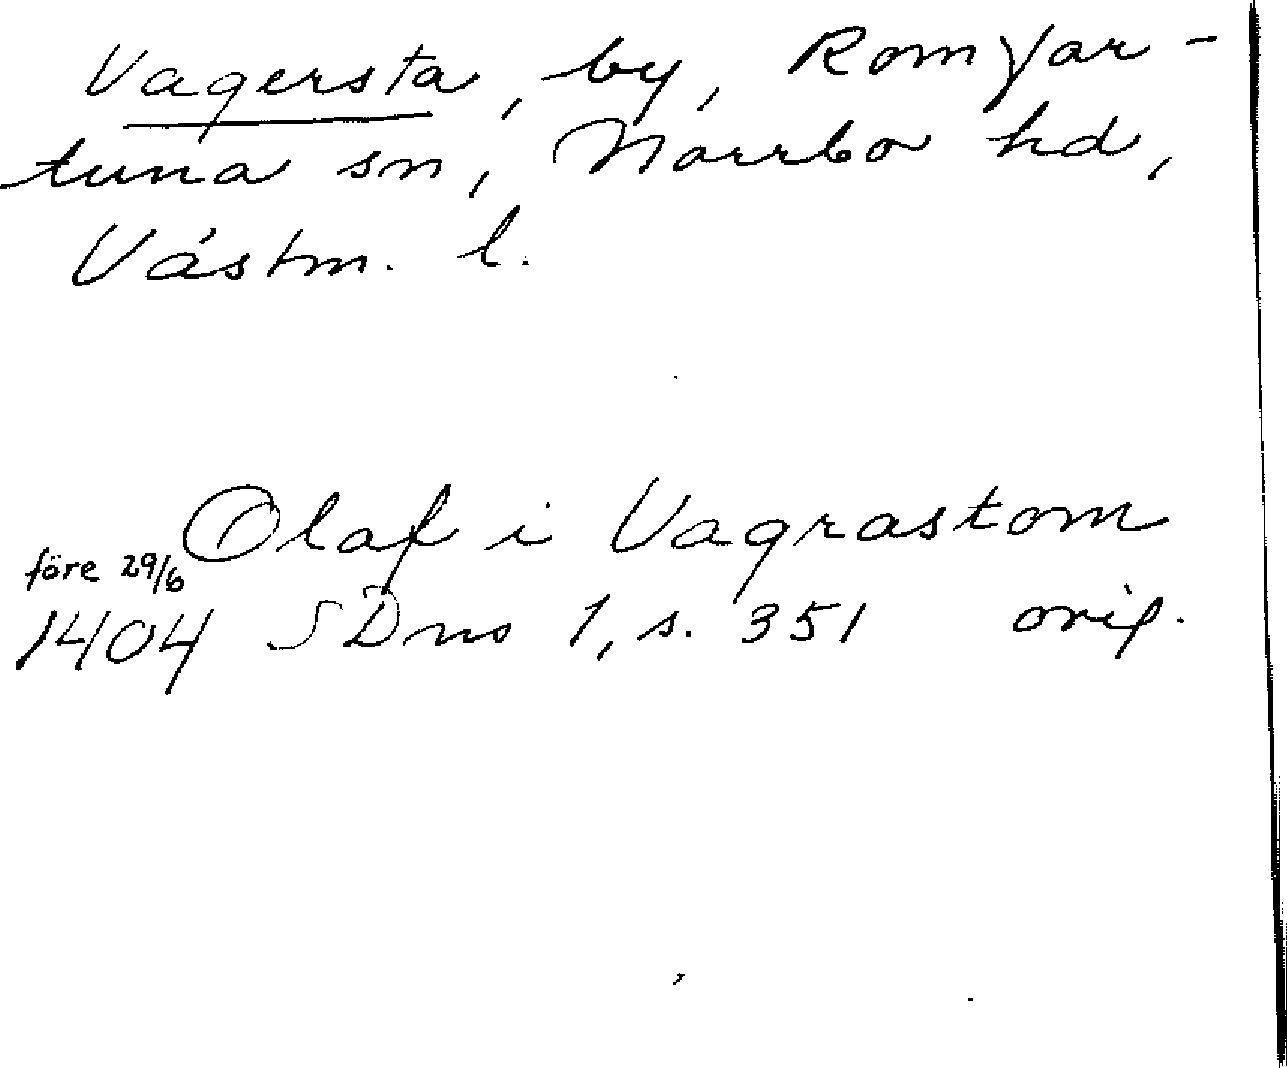 Vagersta, by, Romfar-
tuna sn, Norrbo hd,
Västm. l.
Olaf i Vagrastom
före 29/6
1404 SDns 1, s. 351 orig.